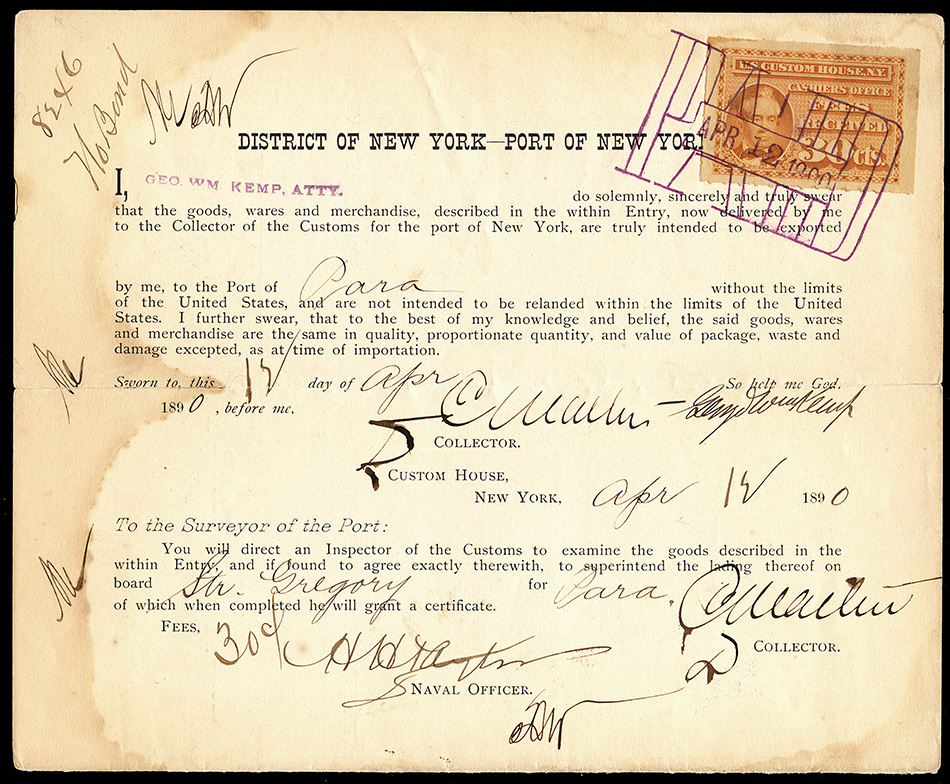 8246
No Bond
DISTRICT OF NEW YORK—PORT OF NEW YORK
U.S. CUSTOM HOUSE, N.Y.
CASHIERS OFFICE
FEES
RECEIVED
30 CTS.
APR 12 1890
I, GEO. WM KEMP, ATTY. do solemnly, sincerely and truly swear
that the goods, wares and merchandise, described in the within Entry, now delivered by me
to the Collector of the Customs for the port of New York, are truly intended to be exported
by me, to the Port of Para without the limits
of the United States, and are not intended to be relanded within the limits of the United
States. I further swear, that to the best of my knowledge and belief, the said goods, wares
and merchandise are the same in quality, proportionate quantity, and value of package, waste and
damage excepted, as at time of importation.
Sworn to, this 12 day of Apr So help me God.
1890, before me, Geo Wm Kemp
D COLLECTOR.
CUSTOM HOUSE,
NEW YORK, Apr 12 1890
To the Surveyor of the Port:
You will direct an Inspector of the Customs to examine the goods described in the
within Entry, and if found to agree exactly therewith, to superintend the lading thereof on
board Str. Gregory for Para.
of which when completed he will grant a certificate.
FEES, 30c
D COLLECTOR.
NAVAL OFFICER.